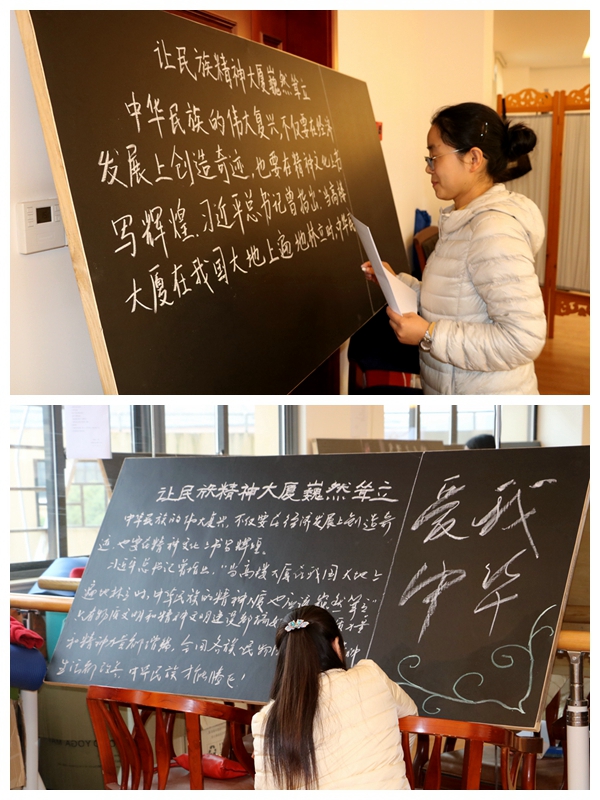 让民族精神大厦巍然耸立
中华民族的伟大复兴,不仅要在经济
发展上创造奇迹,也要在精神文化上书
写辉煌。习近平总书记曾指出:"当高楼
大厦在我国大地上遍地林立时,中华民
让民族精神大厦巍然耸立
中华民族的伟大复兴,不仅要在经济发展上创造奇
迹,也要在精神文化上书写辉煌。
习近平总书记曾指出:"当高楼大厦在我国大地上
遍地林立时,中华民族的精神大厦也应该巍然耸立"
只有物质文明和精神文明建设都搞好
和精神力量都增强,全国各族人民物
生活都改善,中华民族才能腾飞!
爱我
中华